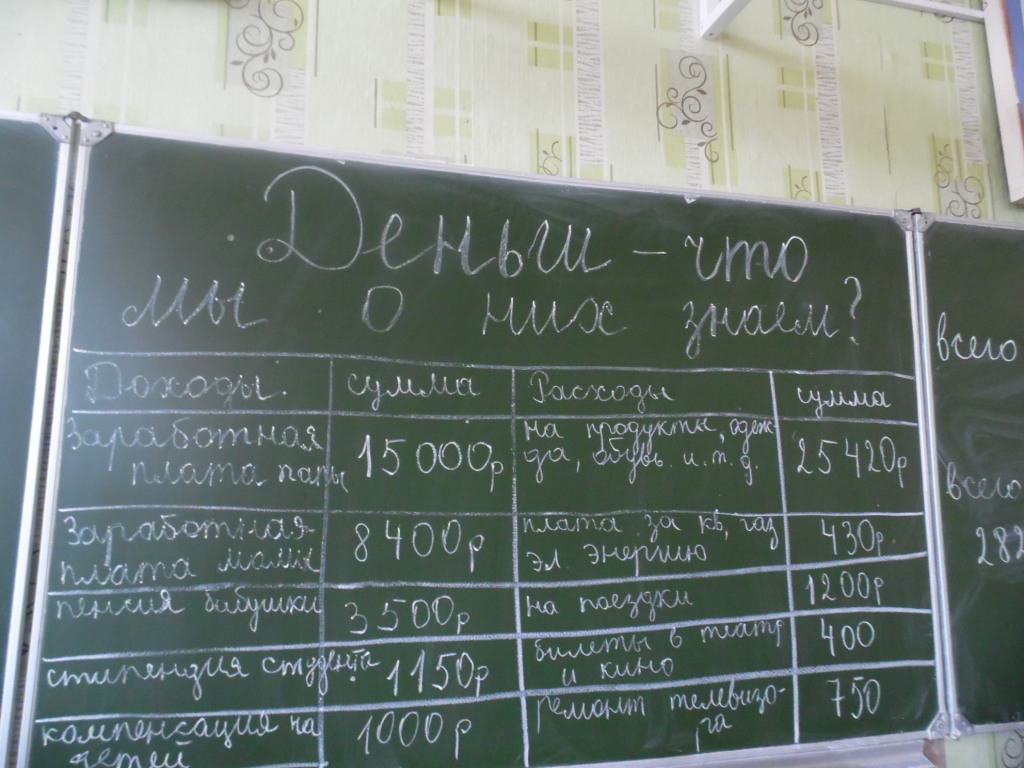 Деньги – что
мы о них знаем?
Доходы. сумма Расходы сумма
Заработная
плата папы 15 000р на продукты, одеж-
да, обувь. и.т.д. 25 420р
Заработная
плата мамы 8 400р плата за кв, газ
эл энергию 430р
пенсия бабушки 3 500р на поездки 1200р
стипендия студента 1150р билеты в театр
и кино 400
компенсация на
детей 1000р ремонт телевизо-
ра 750
всего
всего
282